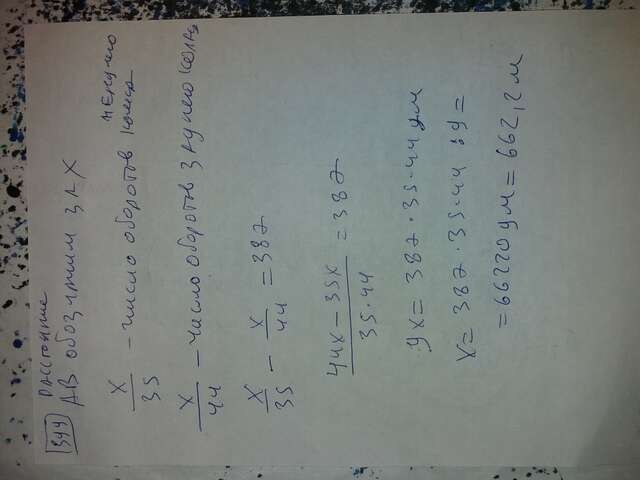 344 Расстояние
АВ обозначим за X
X/35 – число оборотов переднего колеса
X/44 – число оборотов заднего колеса
X/35 – X/44 = 387
(44X – 35X)/(35·44) = 387
9X = 387·35·44 дм
X = 387·35·44 : 9 =
= 66220 дм = 662,2 м